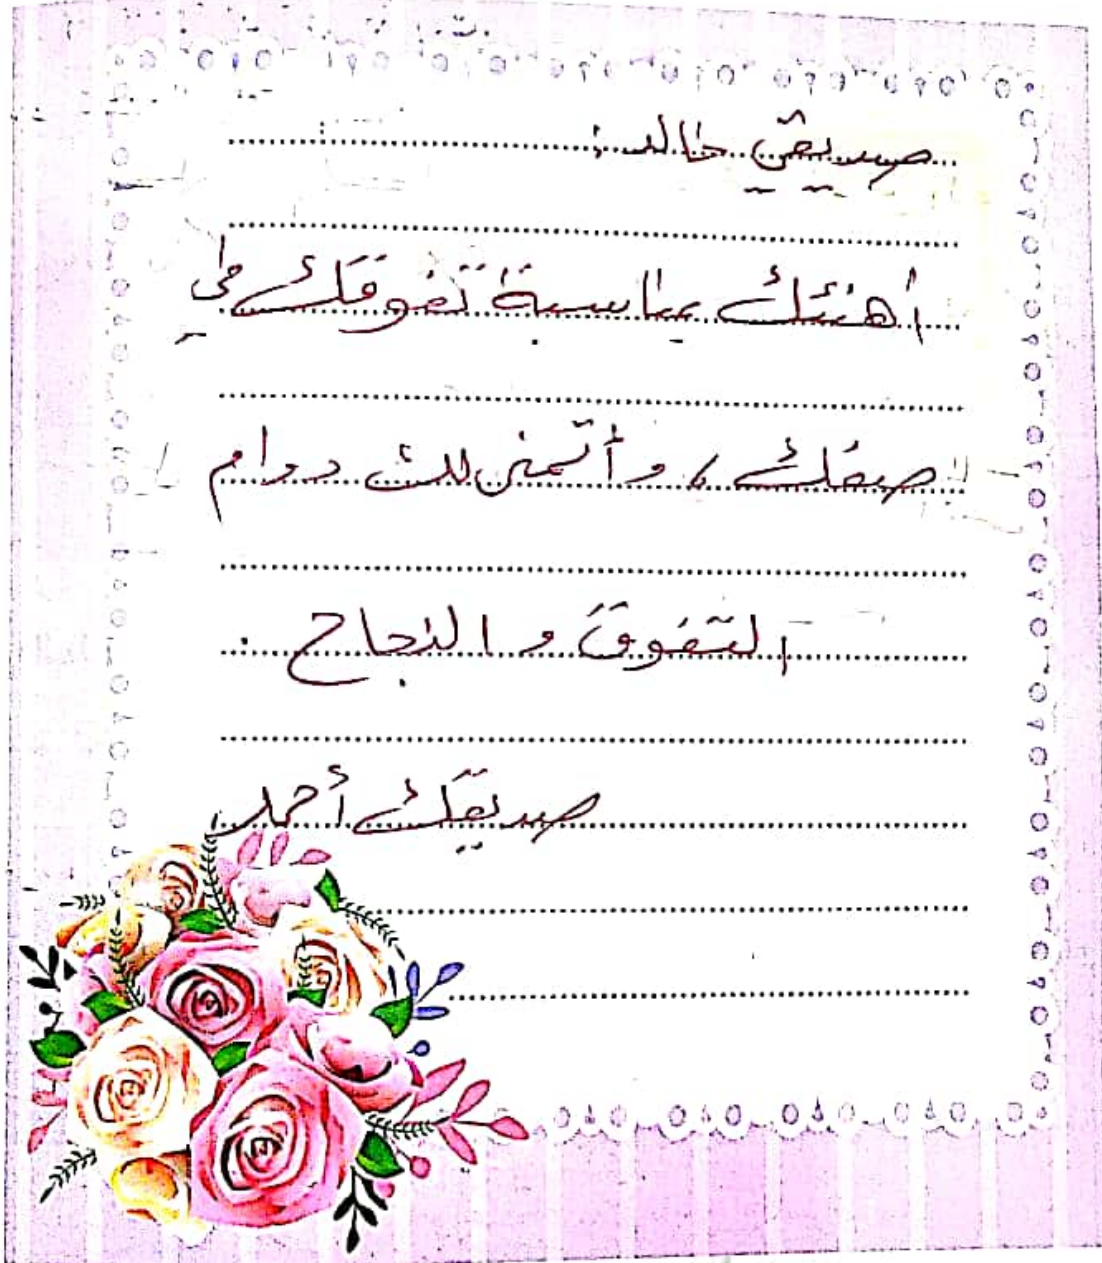 صديقي خالد :
أهنئك بمناسبة تفوقك في
صفك ، و أتمنى لك دوام
التفوق و النجاح .
صديقك أحمد